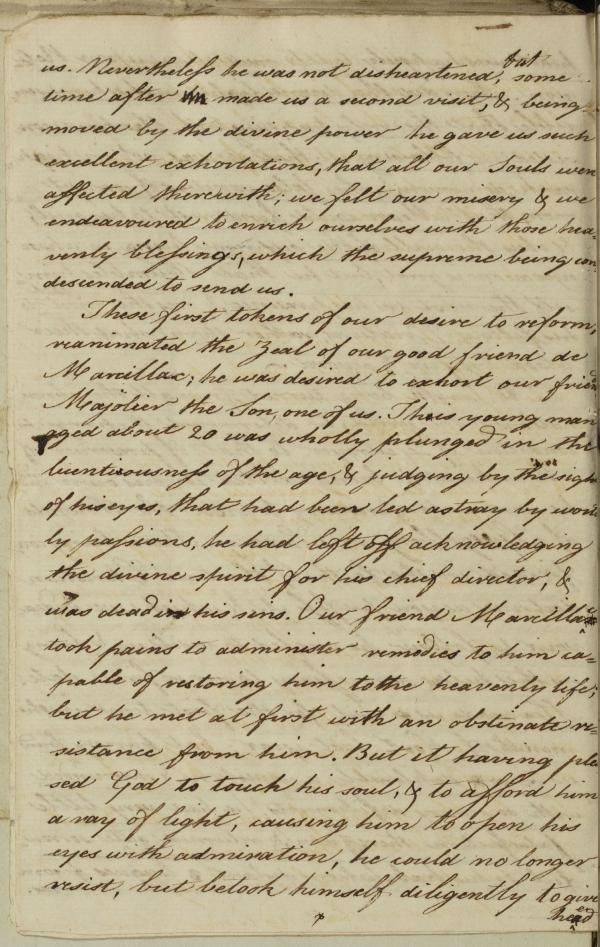 us. Nevertheless he was not disheartened, but some
time after made us a second visit, & being
moved by the divine power he gave us such
excellent exhortations, that all our Souls were
affected therewith; we felt our misery & we
endeavoured to enrich ourselves with those hea=
venly blessings, which the supreme being con
descended to send us.
These first tokens of our desire to reform,
reanimated the Zeal of our good friend de
Marcillac; he was desired to exhort our friend
Majolier the Son, one of us. This young man
aged about 20 was wholly plunged in the
licentiousness of the age, & judging by the sight
of his eyes, that had been led astray by world
ly passions, he had left off acknowledging
the divine spirit for his chief director, &
was dead in his sins. Our friend Marcillac
took pains to administer remidies to him ca=
pable of restoring him to the heavenly life;
but he met at first with an obstinate re=
sistance from him. But it having plea
sed God to touch his soul, & to afford him
a ray of light, causing him to open his
eyes with admiration, he could no longer
resist, but betook himself diligently to give
heed